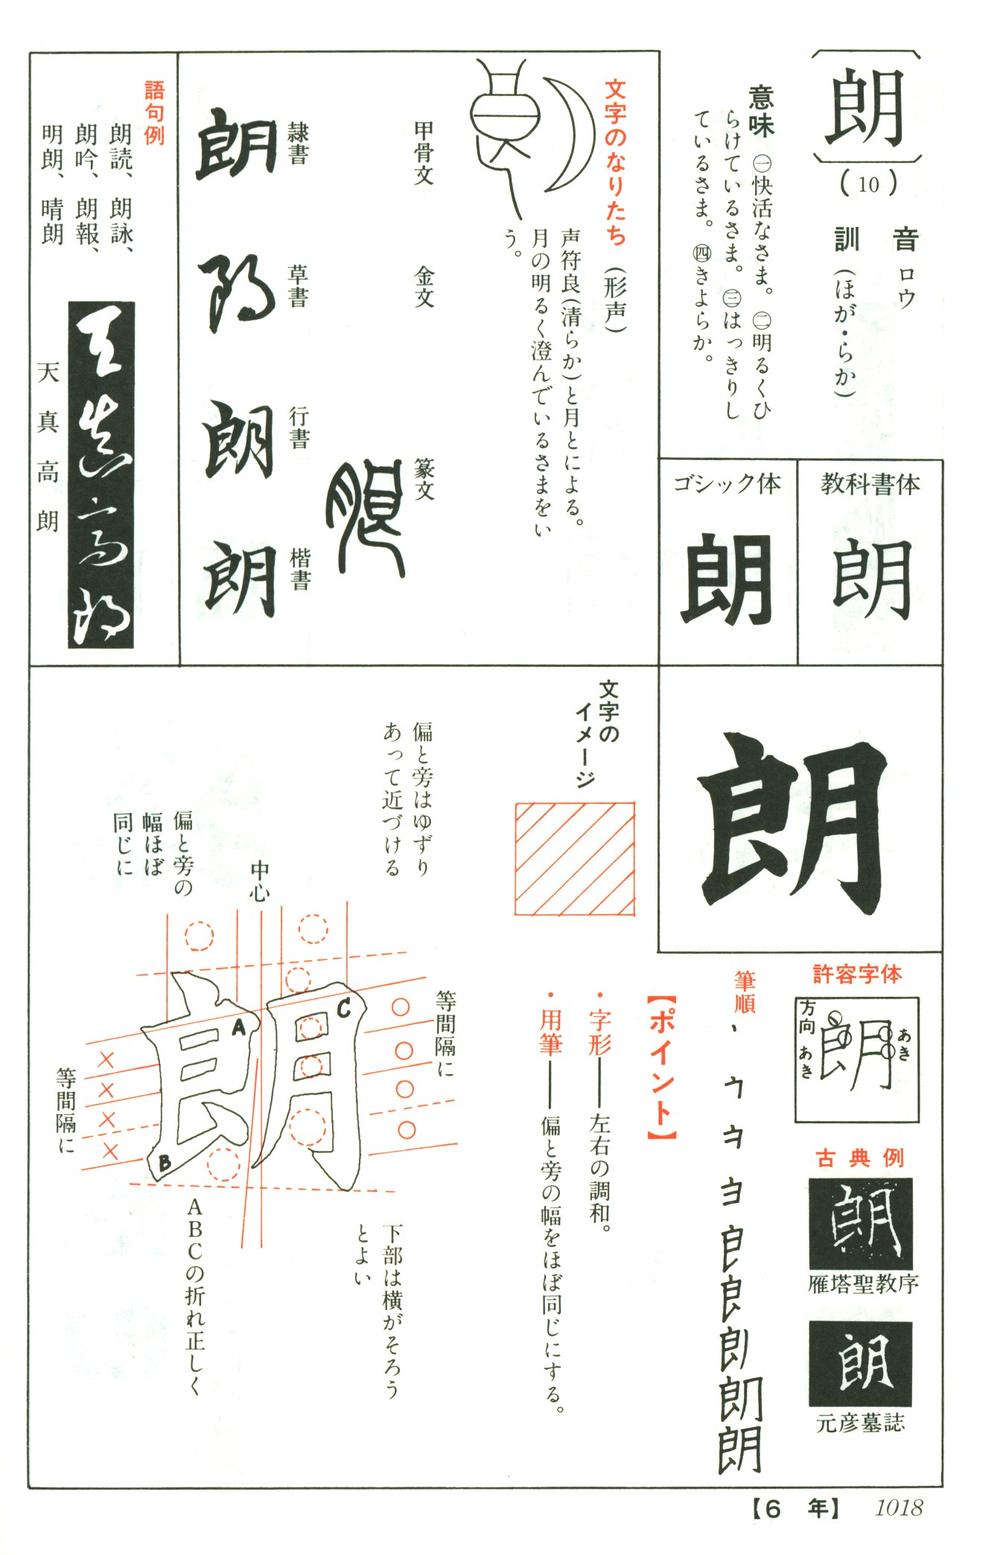 朗
(10)
音 ロウ
訓 (ほが・らか)
意味 ㊀快活なさま。㊁明るくひ
らけているさま。㊂はっきりし
ているさま。㊃きよらか。
教科書体
朗
ゴシック体
朗
文字のなりたち (形声)
声符良(清らか)と月とによる。
月の明るく澄んでいるさまをい
う。
甲骨文
金文
篆文
朗
隷書
朗
草書
朗
行書
朗
楷書
朗
語句例
朗読、朗詠、
朗吟、朗報、
明朗、晴朗
天真高朗
天真高朗
朗
許容字体
朗
方向
あき
あき
古典例
朗
雁塔聖教序
朗
元彦墓誌
筆順
朗
【ポイント】
・字形——左右の調和。
・用筆——偏と旁の幅をほぼ同じにする。
文字の
イメージ
偏と旁はゆずり
あって近づける
中心
偏と旁の
幅ほぼ
同じに
等間隔に
等間隔に
朗
A
B
C
下部は横がそろう
とよい
ABCの折れ正しく
【6年】 1018